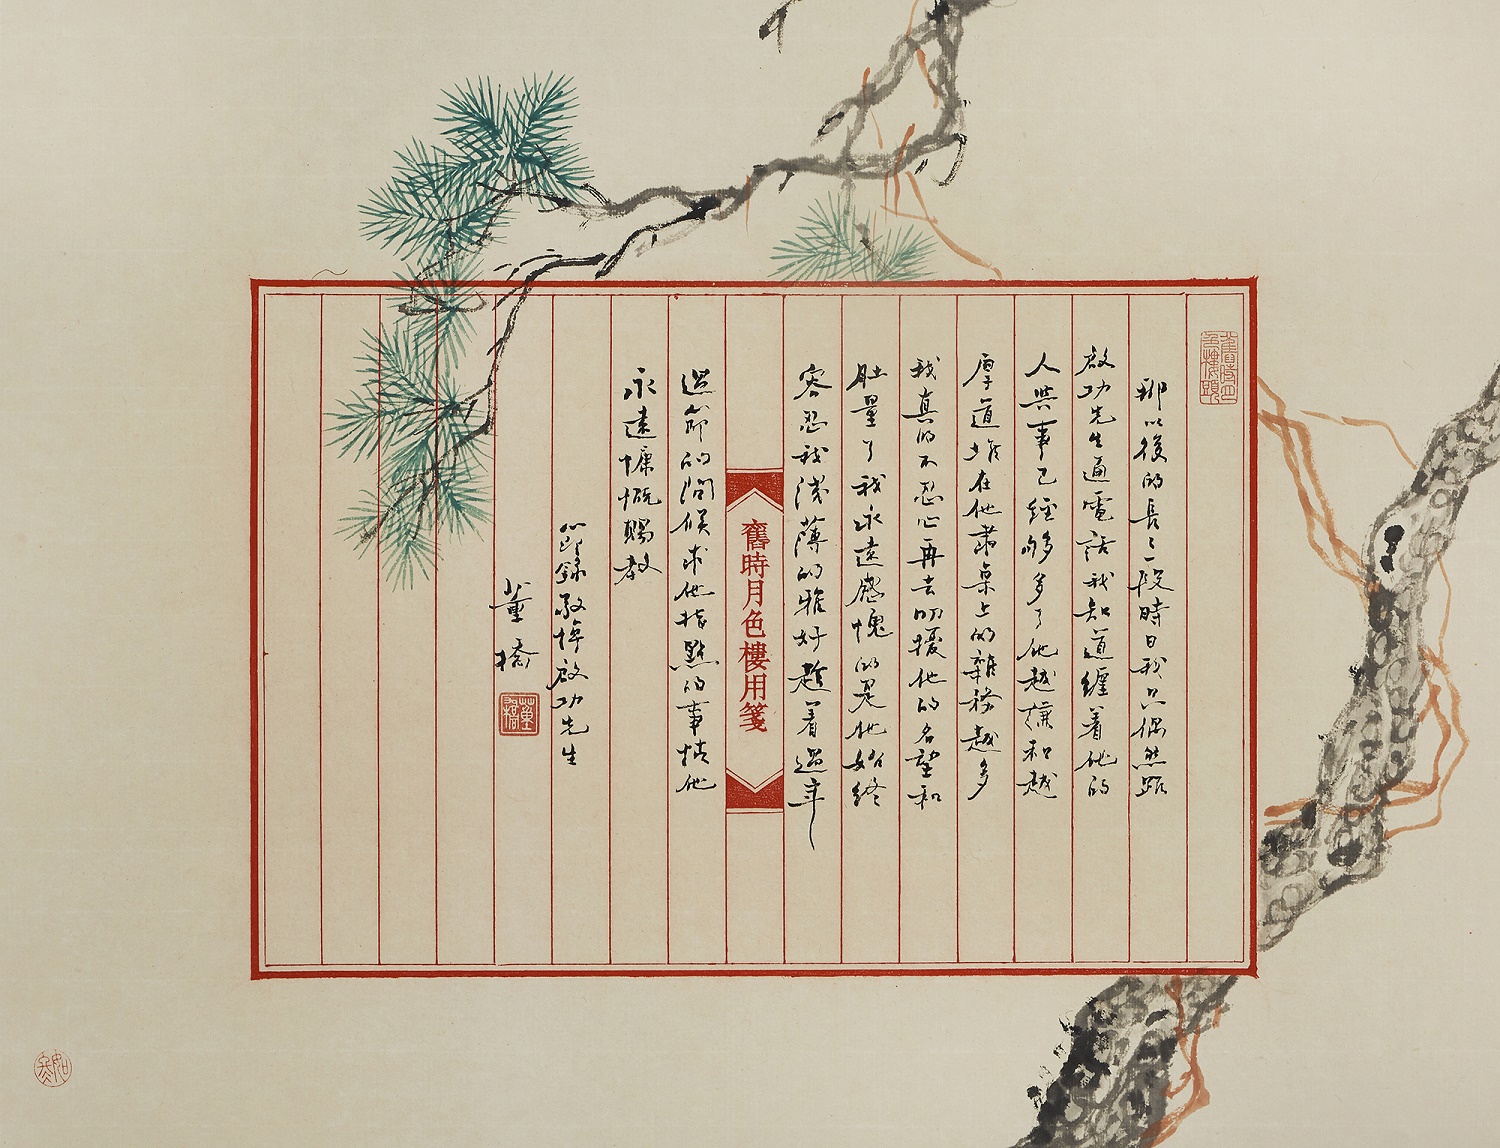 那以後的長長一段時日我只偶然跟
啟功先生通電話我知道纏着他的
人與事已經夠多了他越謙和越
厚道堆在他書桌上的雜務越多
我真的不忍心再去叨擾他的名望和
肚量了我永遠感愧的是他始終
容忍我淺薄的雅好趁着過年
舊時月色樓用箋
過節的問候求他指點的事情他
永遠慷慨賜教
節錄敬悼啟功先生
董橋
董橋